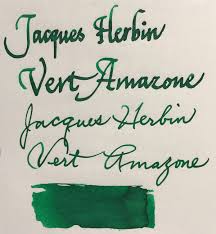 Jacques Herbin
Vert Amazone
Jacques Herbin
Vert Amazone